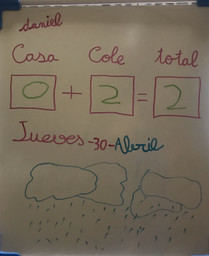 daniel
Casa Cole total
0 + 2 = 2
Jueves-30-Abril